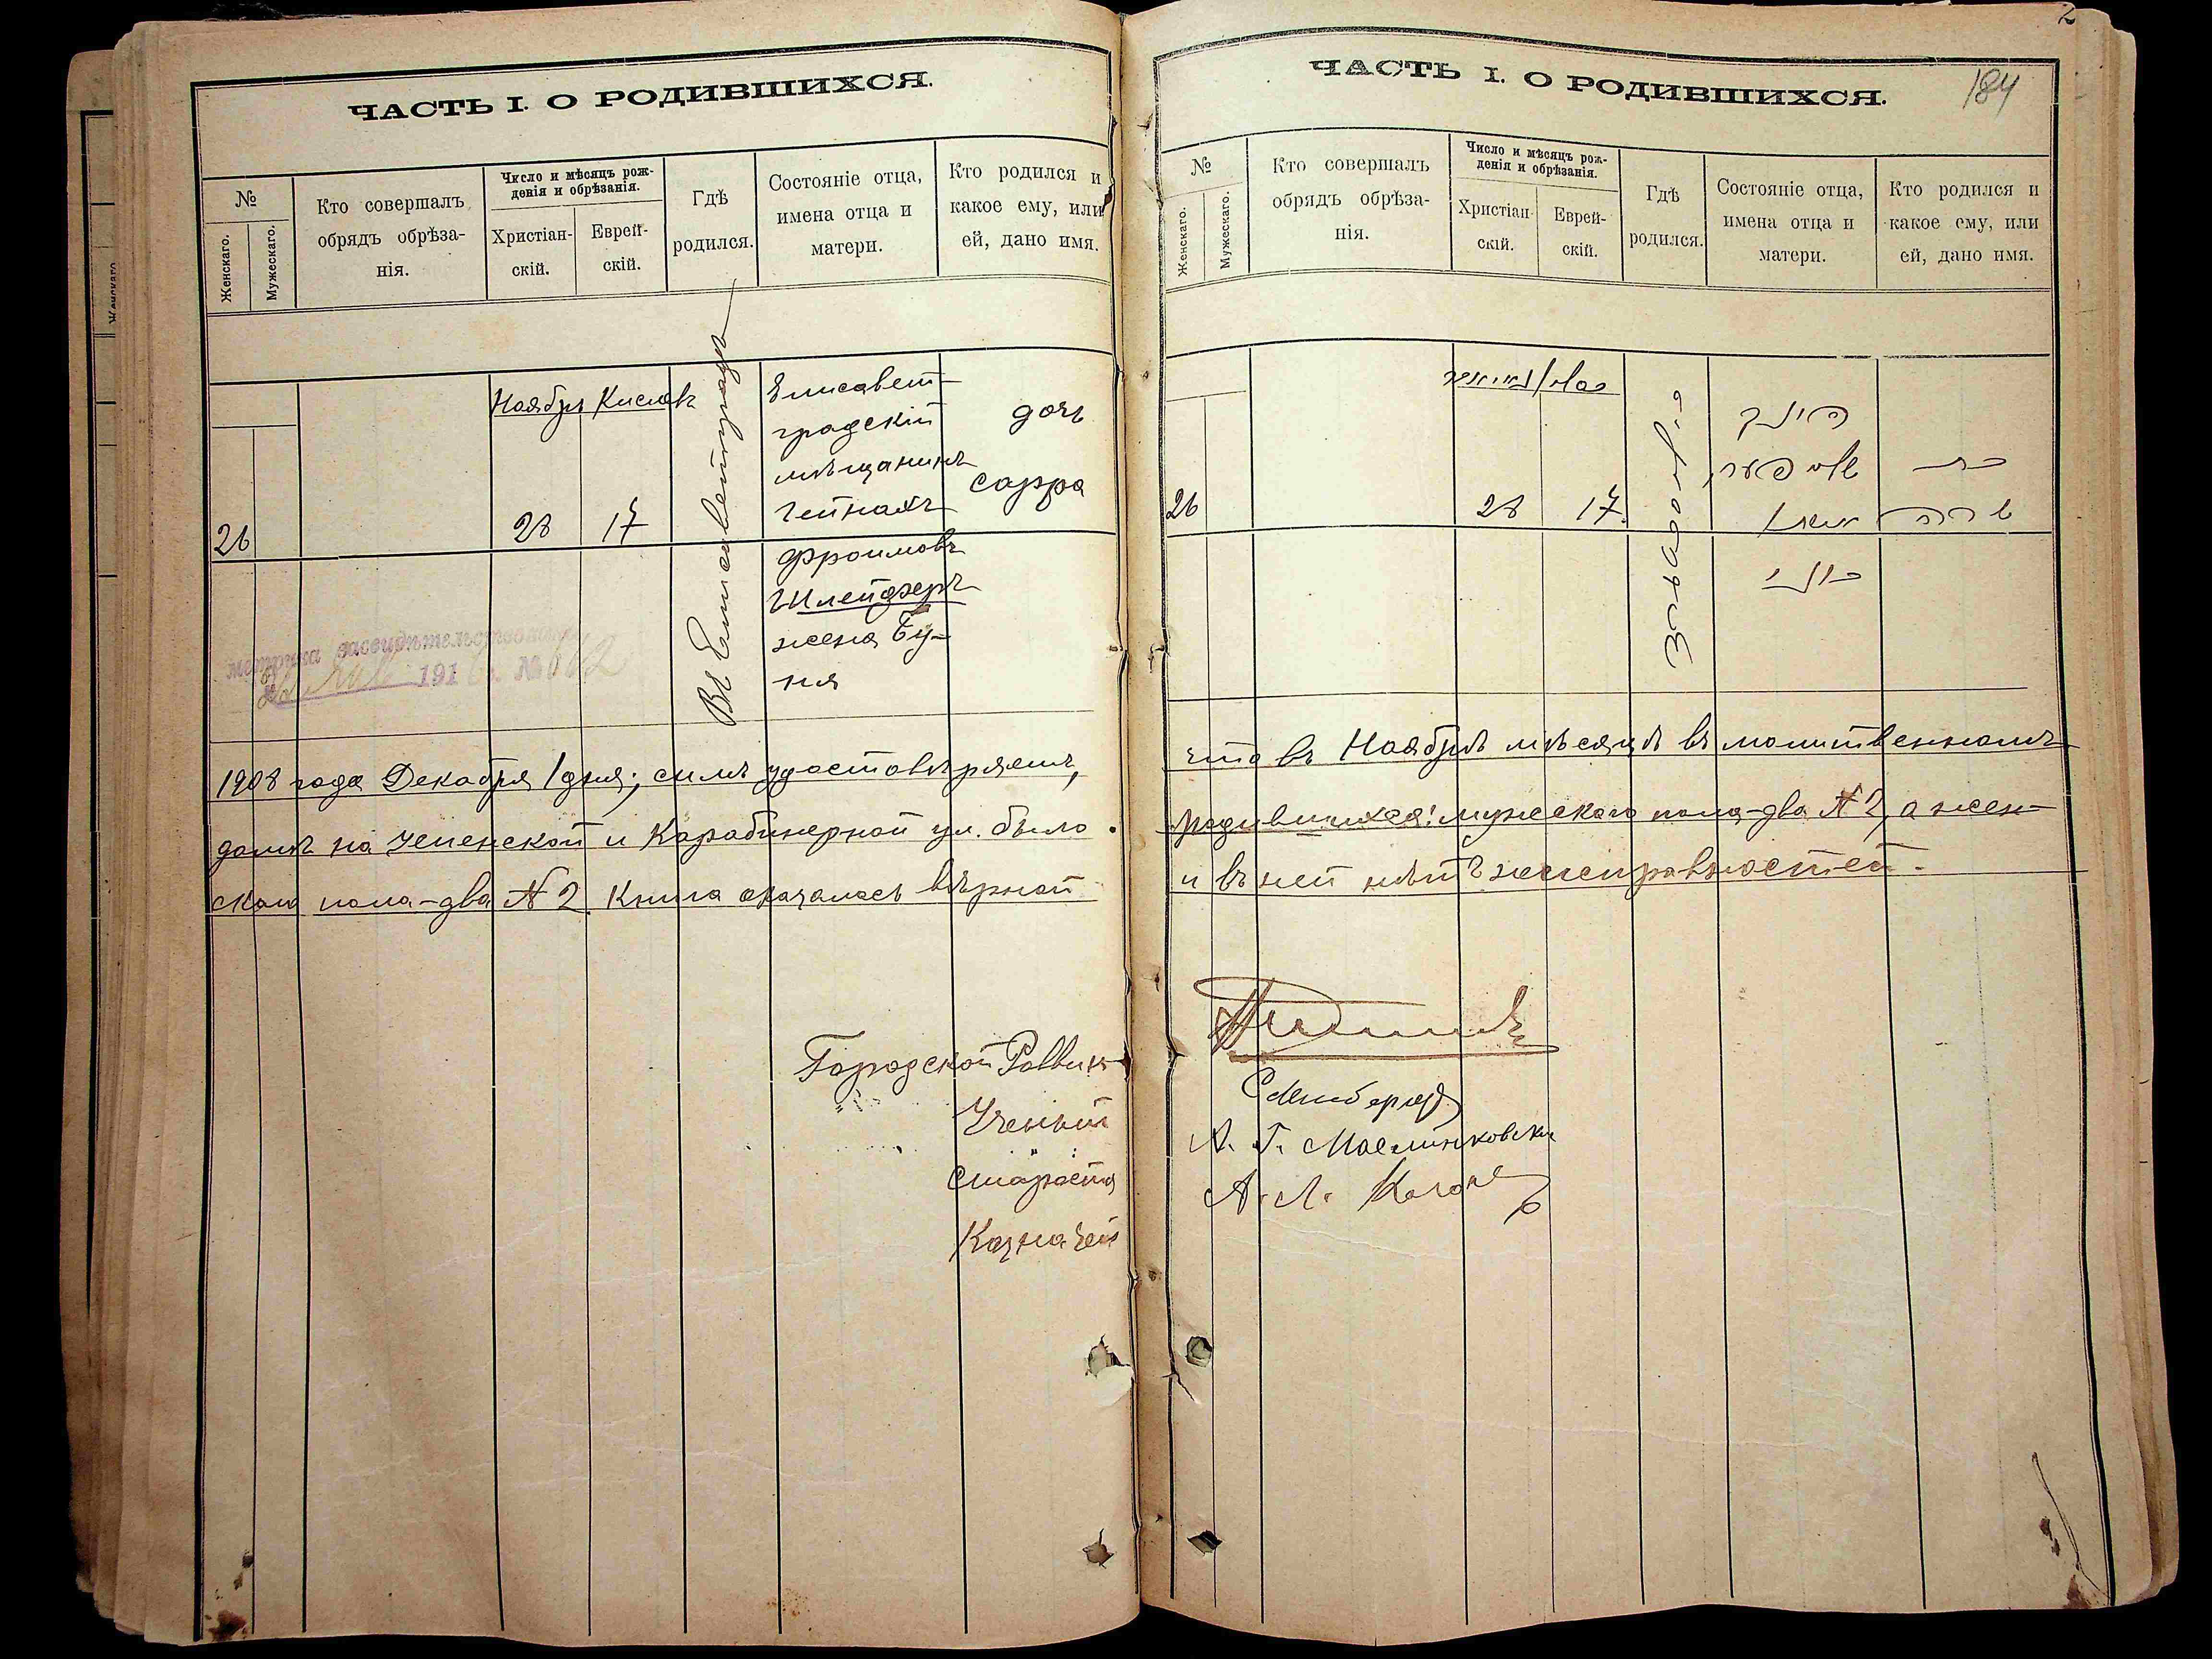 ЧАСТЬ I. О РОДИВШИХСЯ.
№
Женскаго.
Мужескаго.
Кто совершалъ
обрядъ обрѣза-
нія.
Число и мѣсяцъ рож-
денія и обрѣзанія.
Христіан-
скій.
Еврей-
скій.
Гдѣ
родился.
Состояніе отца,
имена отца и
матери.
Кто родился и
какое ему, или
ей, дано имя.
Ноябрь Кислевъ
26
28
17
Въ Елисаветградѣ
Елисавет-
градскій
мѣщанинъ
Гейнахъ
Фроимовъ
Шлейферъ
жена Бу-
ня
дочь
Сарра
метрика засвидѣтельствована
191
1908 года Декабря 1 дня; симъ удостовѣряемъ,
домѣ на Успенской и Карабинерной ул. было
скаго пола-два № 2. Книга оказалась вѣрной
Городской Раввинъ
Ученый
Староста
Казначей
ЧАСТЬ I. О РОДИВШИХСЯ.
184
№
Женскаго.
Мужескаго.
Кто совершалъ
обрядъ обрѣза-
нія.
Число и мѣсяцъ рож-
денія и обрѣзанія.
Христіан-
скій.
Еврей-
скій.
Гдѣ
родился.
Состояніе отца,
имена отца и
матери.
Кто родился и
какое ему, или
ей, дано имя.
26
28
17
שרה
что въ Ноябрѣ мѣсяцѣ въ молитвенномъ
родившихся: мужескаго пола-два № 2, а жен-
и въ ней нѣтъ неисправностей.
А. Л. Коган